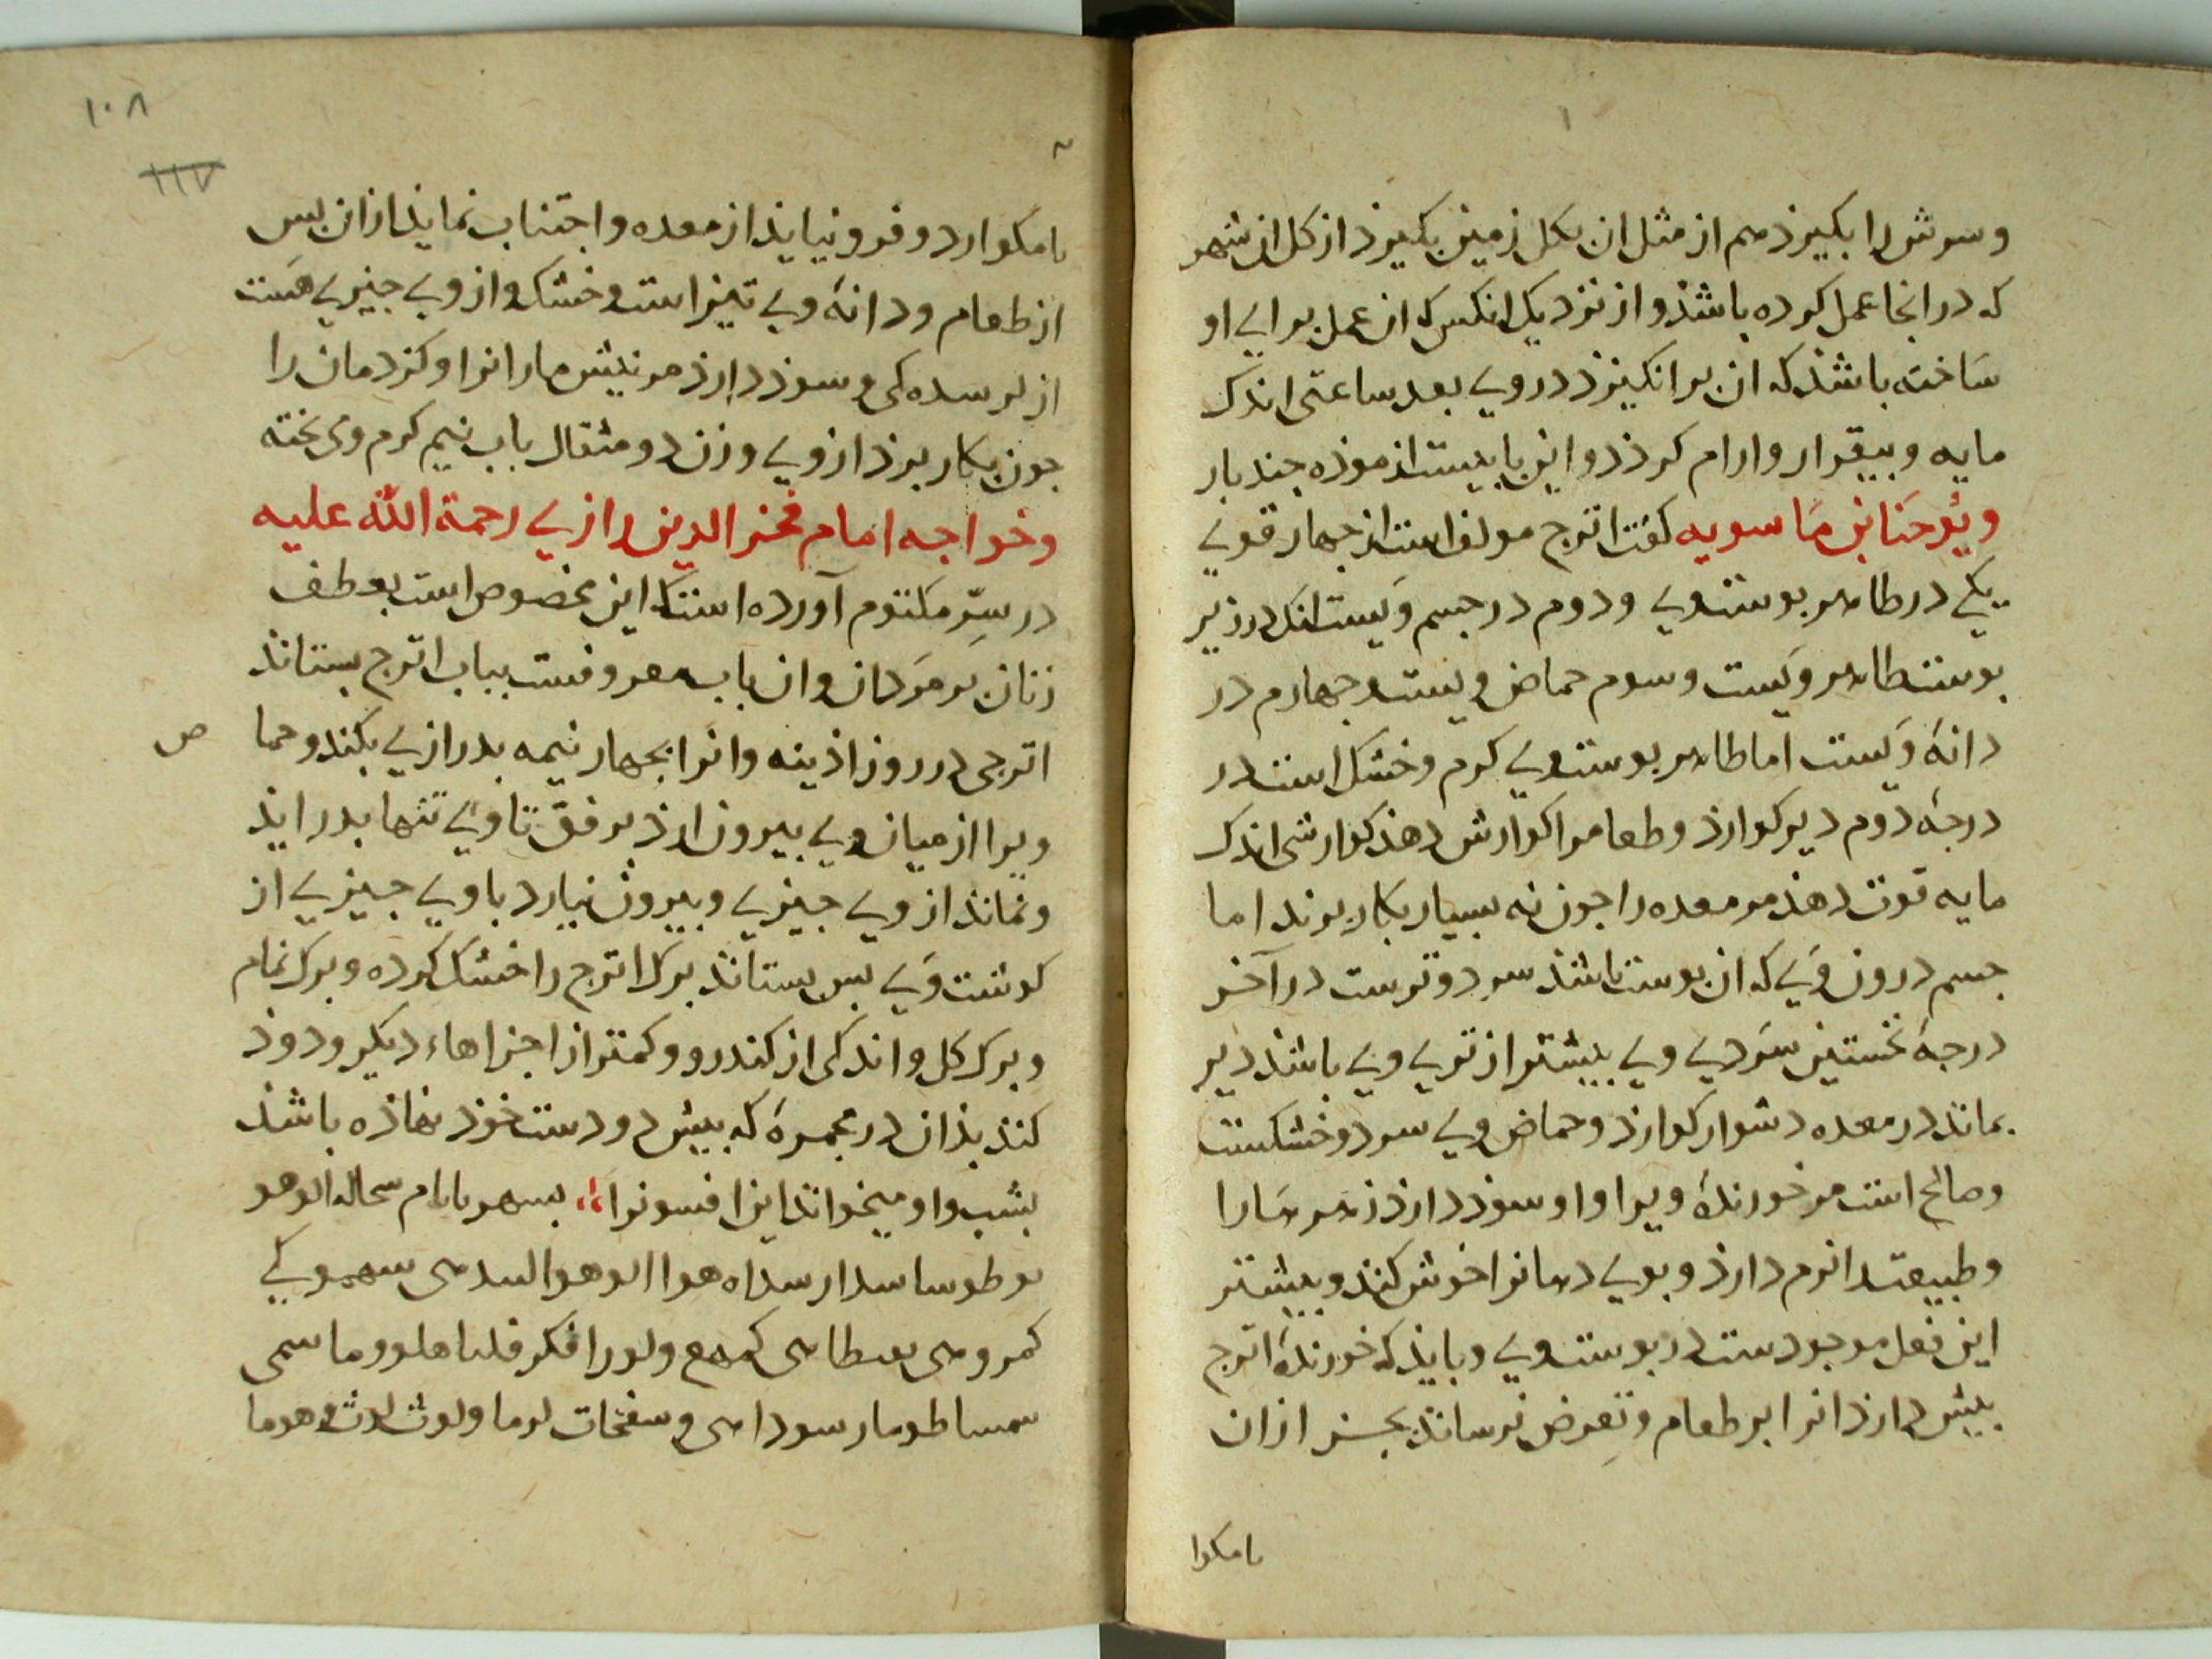 وسرش را بکیرذ هم از مثل ان بکل زمین بکیرذ از کل ان شهر
که در انجا عمل کرده باشذ و از نزدیک انکس که ان عمل برای او
ساخته باشذ که ان برانکیزد در وی بعد ساعتی اندک
مایه و بیقرار وارام کرذد و این بابیست ازموذه جند بار
ویُوحَنا بن مَاسویه کفت اترج مولف است از جهار قوی
یکی در ظاهر بوست وی ودوم در جسم وَیست انک در زیر
بوست ظاهر ویَست وسوم حماض ویست وجهارم در
دانهٔ وَیست اما ظاهر بوست وی کرم وخشک است در
درجهٔ دوم دیر کوارذ وطعام را کوارش دهذ کوارشی اندک
مایه قوت دهذ مر معده را جون نه بسیار بکار برند اما
جسم درون وَی که ان بوست باشذ سرد وترست در آخر
درجهٔ نخستین سَردی وی بیشتر از تری وی باشذ دیر
بمانذ در معده دشوار کوارذ وحماض وی سرد وخشکست
وصالح است مر خورندهٔ ویرا واو سوذ دارذ زهر هَارا
وطبیعت را نرم دارذ وبوی دهانرا خوش کنذ وبیشتر
این فعل موجودست در بوست وی وبایذ که خورندهٔ اترج
بیش دارذ انرا بر طعام وتعرض نرسانذ بجز از ان
نامکوا
۱۰۸
۱۱۷
نامکوارد و فرو نیایذ از معده واجتناب نمایذ از ان بس
از طعام ودانهٔ وی تیز است وخشک واز وی جیزی هَست
از کی وسوذ دارذ مر نیش مارانرا وکزدمان را
جون بکار برذ از وی وزن دو مثقال باب نیم کرم وی بخته
وخواجه امام فخر الدین رازی رحمة الله علیه
در سِرّ مکتوم آورده است که این مخصوص است بعطف
زنان بَر مَردان وان باب معروفست بباب اترج بستانذ
اترجی در روز اذینه وانرا بجهار نیمه بدرازی بکند وحما
ص
ویرا از میان وی بیرون ارذ برفق تا وَی تنها بدر ایذ
ونمانذ از وی جیزی وبیرون نیارد با وی جیزی از
کوشت وَی بس بستانذ برک اترج را خشک کرده وبرک نمام
وبرک کل واندکی از کندرو وکمتر از اجزاهاء دیکر ودوذ
کنذ بذان در مجمرهٔ که بیش دو دست خوذ نهاذه باشذ
بشب واو میخوانذ این افسونرا